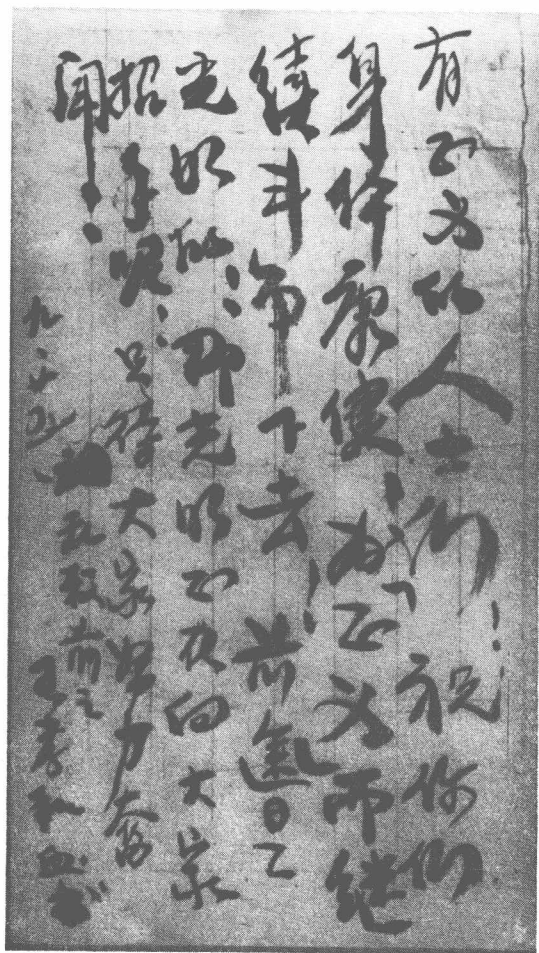 有正义的人士们!祝你们
身体康健!为正义而继
續斗争下去!前途是
光明的!那光明正在向大家
招手呢!只待大家努力奋
闘!
王孝和血书